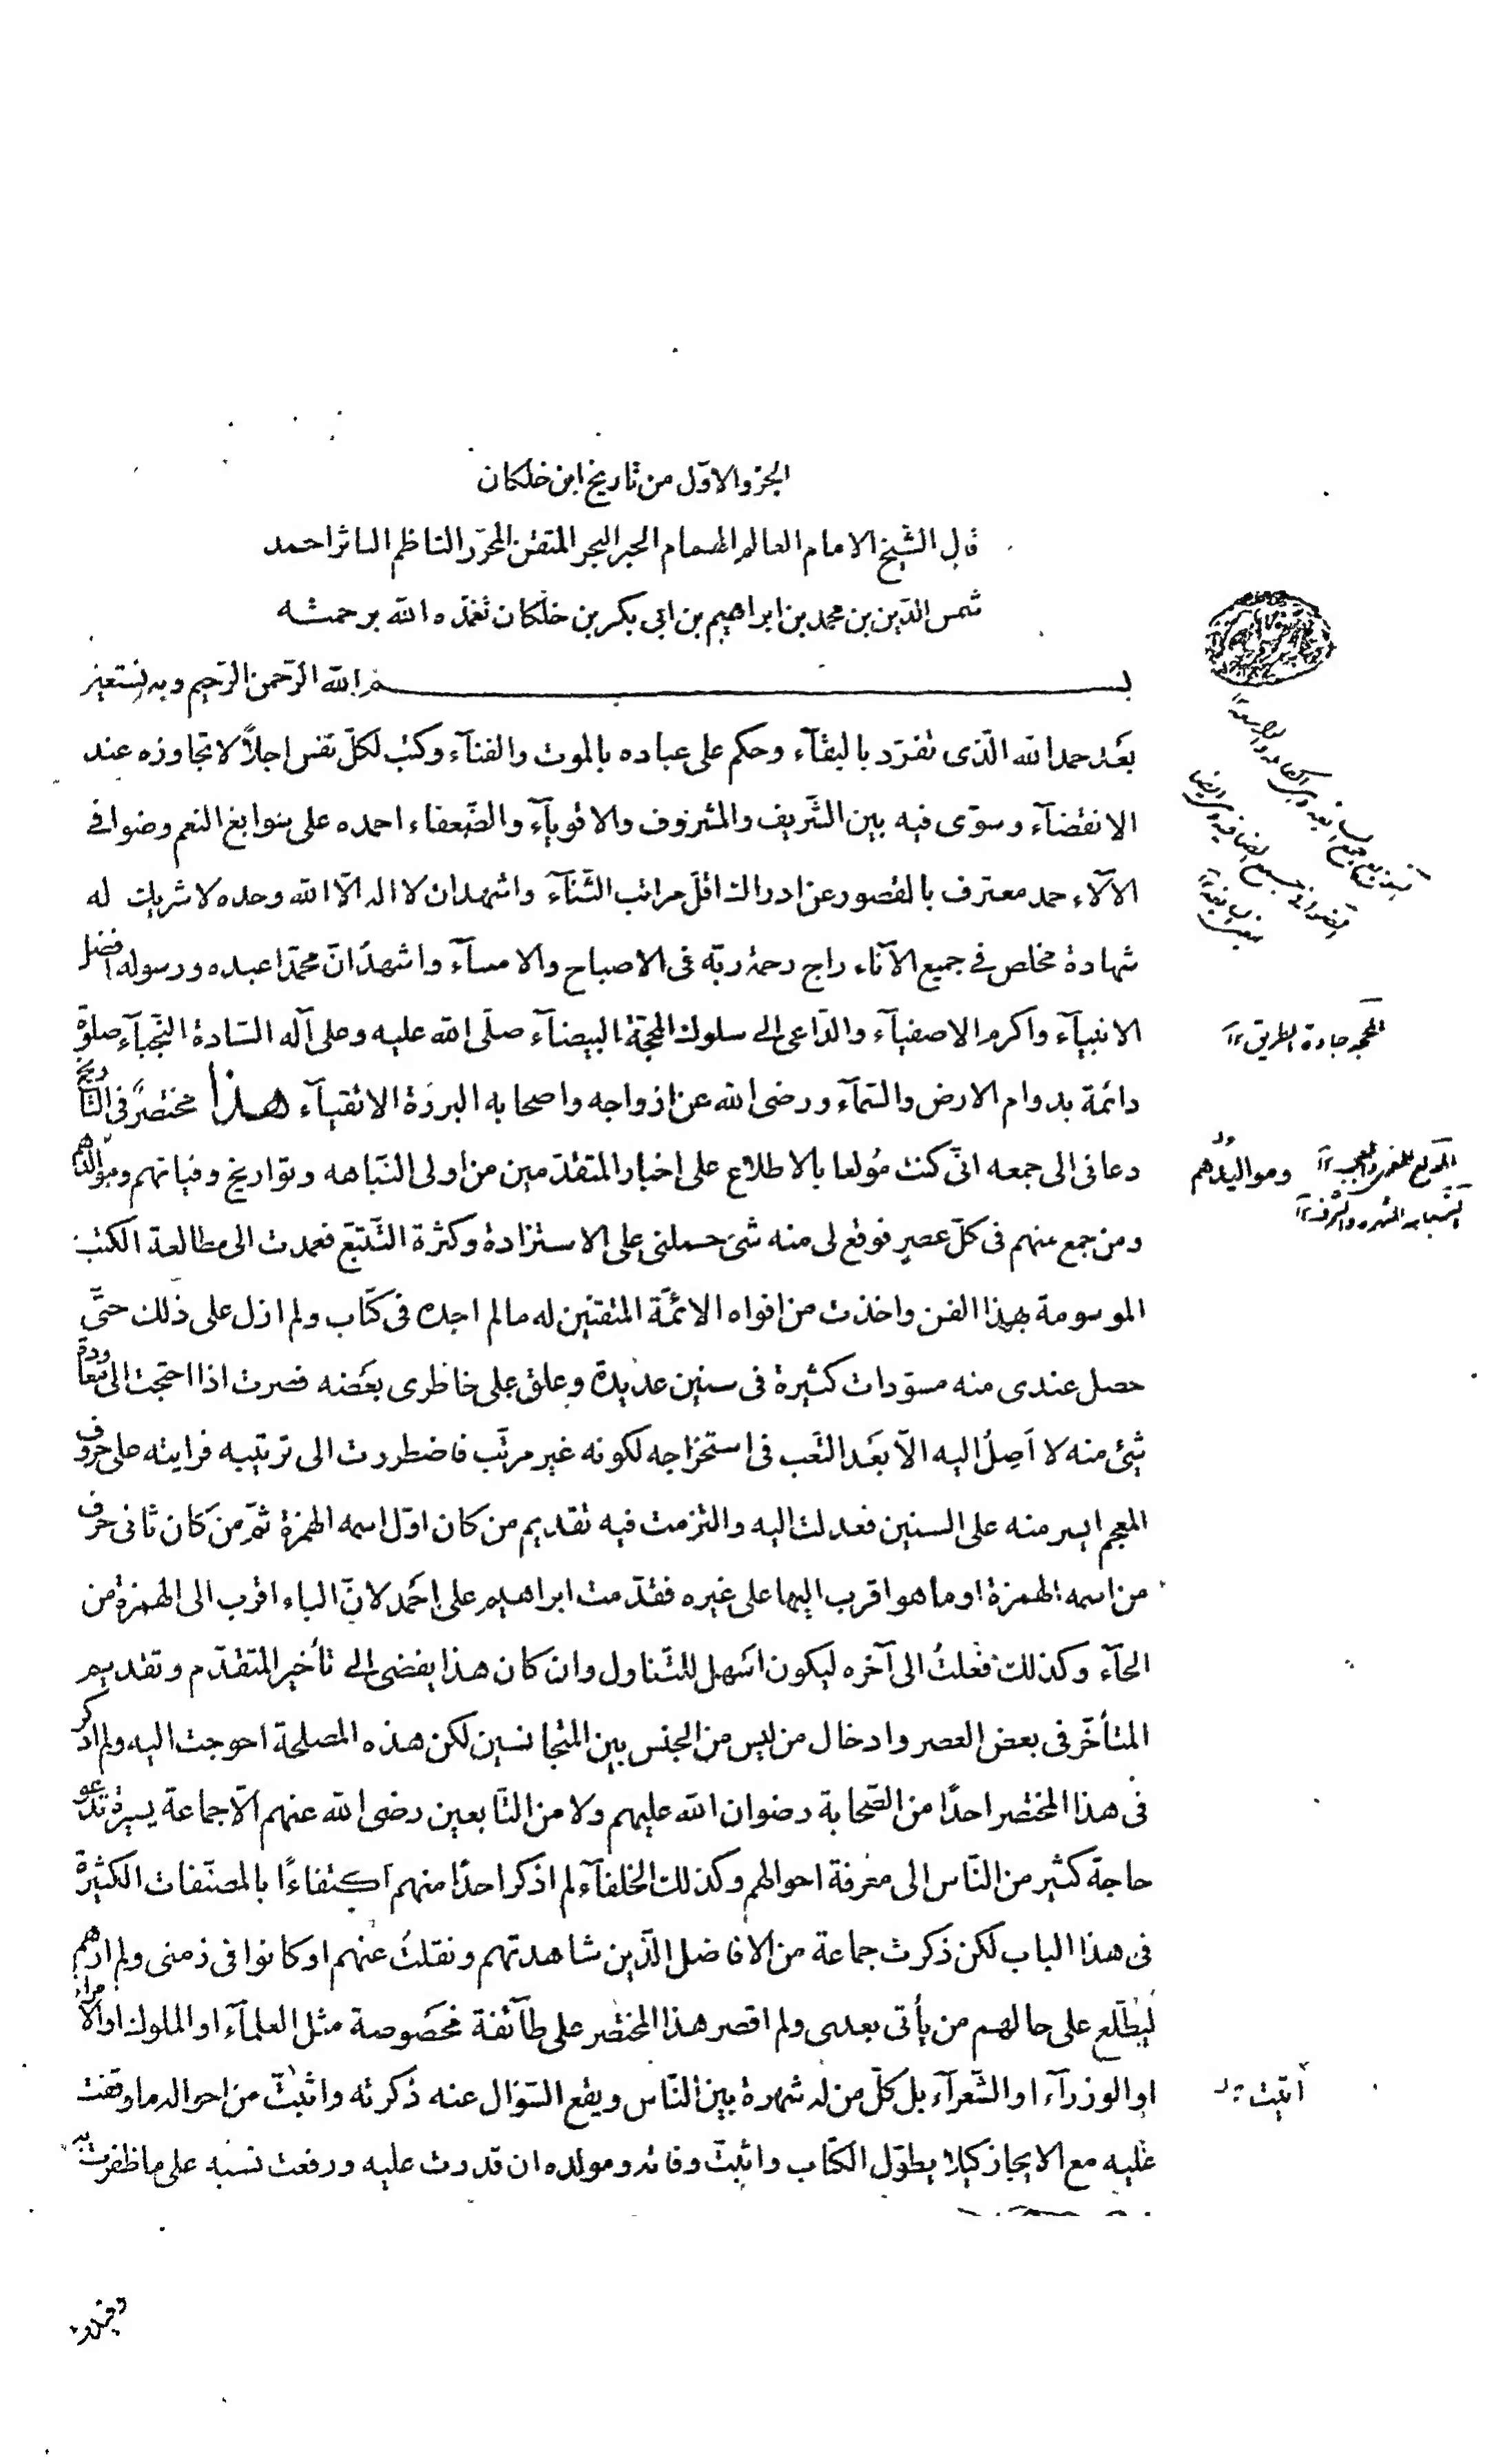 الجزء الاوّل من تاريخ ابن خلكان
قال الشيخ الامام العالم الهمام الحبر البحر المتقن المحرّر الناظم الناثر احمد
شمس الدّين بن محمد بن ابراهيم بن ابى بكر بن خلّكان تغمّده الله برحمته
بسم الله الرّحمن الرّحيم وبه نستعين
بعَد حمد الله الّذى تفرّد بالبقآء وحكم على عباده بالموت والفنآء وكتب لكلّ نفس اجلاً لا تجاوزه عند
الانقضآء وسوّى فيه بين الشّريف والمشروف والاقويآء والضّعفاء احمده على سوابغ النعم وضوافى
الآلاء حمد معترف بالقصور عن ادراك اقلّ مراتب الثّنآء واشهد ان لا اله الّا الله وحده لا شريك له
شهادة مخلص فى جميع الآناء راج رحمة ربّه فى الاصباح والامسآء واشهد انّ محمّدا عبده ورسوله افضل
الانبيآء واكرم الاصفيآء والدّاعى الى سلوك المحجّة البيضآء صلّى الله عليه وعلى آله السّادة النّجبآء صلوة
دائمة بدوام الارض والسّمآء ورضى الله عن ازواجه واصحابه البررة الاتقيآء هذا مختصرٌ فى التّاريخ
دعانى الى جمعه انّى كنت مُولعا بالاطلاع على اخبار المتقدّمين من اولى النّباهه وتواريخ وفياتهم وموالدهم
ومن جمع منهم فى كلّ عصرٍ فوقع لى منه شئ حملنى على الاستزادة وكثرة التّتبّع فعمدت الى مطالعة الكتب
الموسومة بهذا الفن واخذت من افواه الائمّة المتقنين له ما لم اجده فى كتاب ولم ازل على ذلك حتّى
حصل عندى منه مسوّدات كثيرة فى سنين عديدة وعلق على خاطرى بعَضه فصرت اذا احتجت الى معاودة
شئ منه لا اَصِلُ اليه الّا بعَد التّعب فى استخراجه لكونه غير مرتّب فاضطررت الى ترتيبه فرايته على حروف
المعجم ايسر منه على السنين فعدلت اليه والتزمت فيه تقديم من كان اوّل اسمه الهمزة ثمّ من كان ثانى حرف
من اسمه الهمزة او ما هو اقرب اليها على غيره فقدّمت ابراهيم على احَمد لانّ الباء اقرب الى الهمزة من
الحآء وكذلك فعلتُ الى آخره ليكون اسَهل للتّناول وان كان هذا يفضى الى تأخير المتقدّم وتقديم
المتأخّر فى بعض العصر وادخال من ليس من الجنس بين المتجانسين لكن هذه المصلحة احوجت اليه ولم اذكر
فى هذا المختصر احدًا من الصّحابة رضوان الله عليهم ولا من التّابعين رضى الله عنهم الّا جماعة يسيرة تدعو
حاجة كثير من النّاس الى معَرفة احوالهم وكذلك الخلفآء لم اذكر احدًا منهم اكتفاءً بالمصنّفات الكثيرة
فى هذا الباب لكن ذكرت جماعة من الافاضل الّذين شاهدتهم ونقلتُ عنهم او كانوا فى زمنى ولم ارهم
ليطّلع على حالهم من يأتى بعدى ولم اقصر هذا المختصر على طآئفة مخصَوصة مثل العلمآء او الملوك او الامراء
او الوزرآء او الشّعرآء بل كلّ من له شهرة بين النّاس ويقع السّؤال عنه ذكرته واثبتّ من احواله ما وقفت
عليه مع الايجاز كيلا يطوّل الكتاب واثبتّ وفاته ومولده ان قدرت عليه ورفعت نسبه على ما ظفرت به
المحجه جادة الطريق
ومواليدهم
اتيت